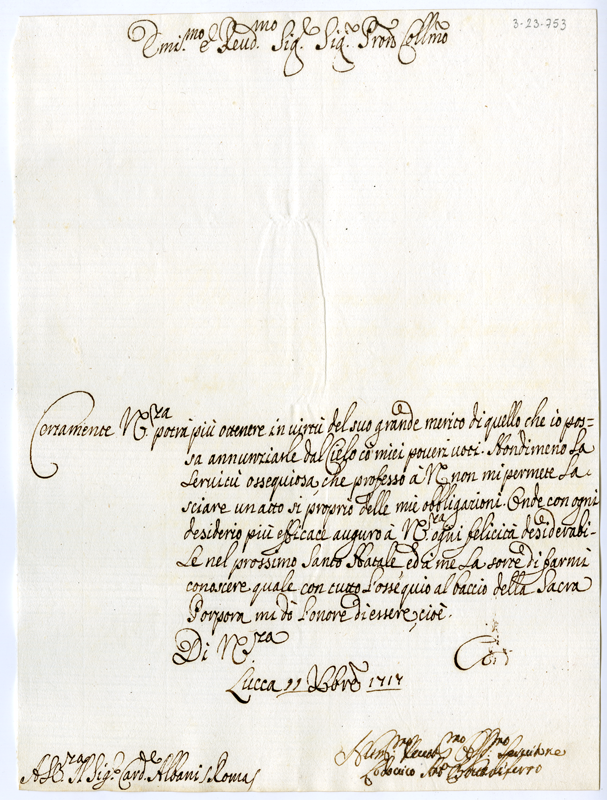 3-23-753
Emi.mo e Reud.mo Sig.r Sig.r Pron Collmo
Certamente V.ra potrà più ottenere in virtù del suo grande merito di quello che io pos-
sa annunziarle dal Cielo co miei poveri voti. Nondimeno la
servitù ossequiosa, che professo à V. non mi permete la-
sciare un atto si proprio delle mie obbligazioni. Onde con ogni
desiderio più efficace auguro à V.ra ogni felicità desiderabi-
le nel prossimo Santo Natale, ed à me la sorte di farmi
conoscere quale con tutto l'ossequio al baccio della Sacra
Porpora mi dò l'onore di essere, cioè.
Di V.ra
Lucca 11 Xbre 1717
Hum.mo Seruit.re
Lodovico
Sig.r Card.le Albani Roma